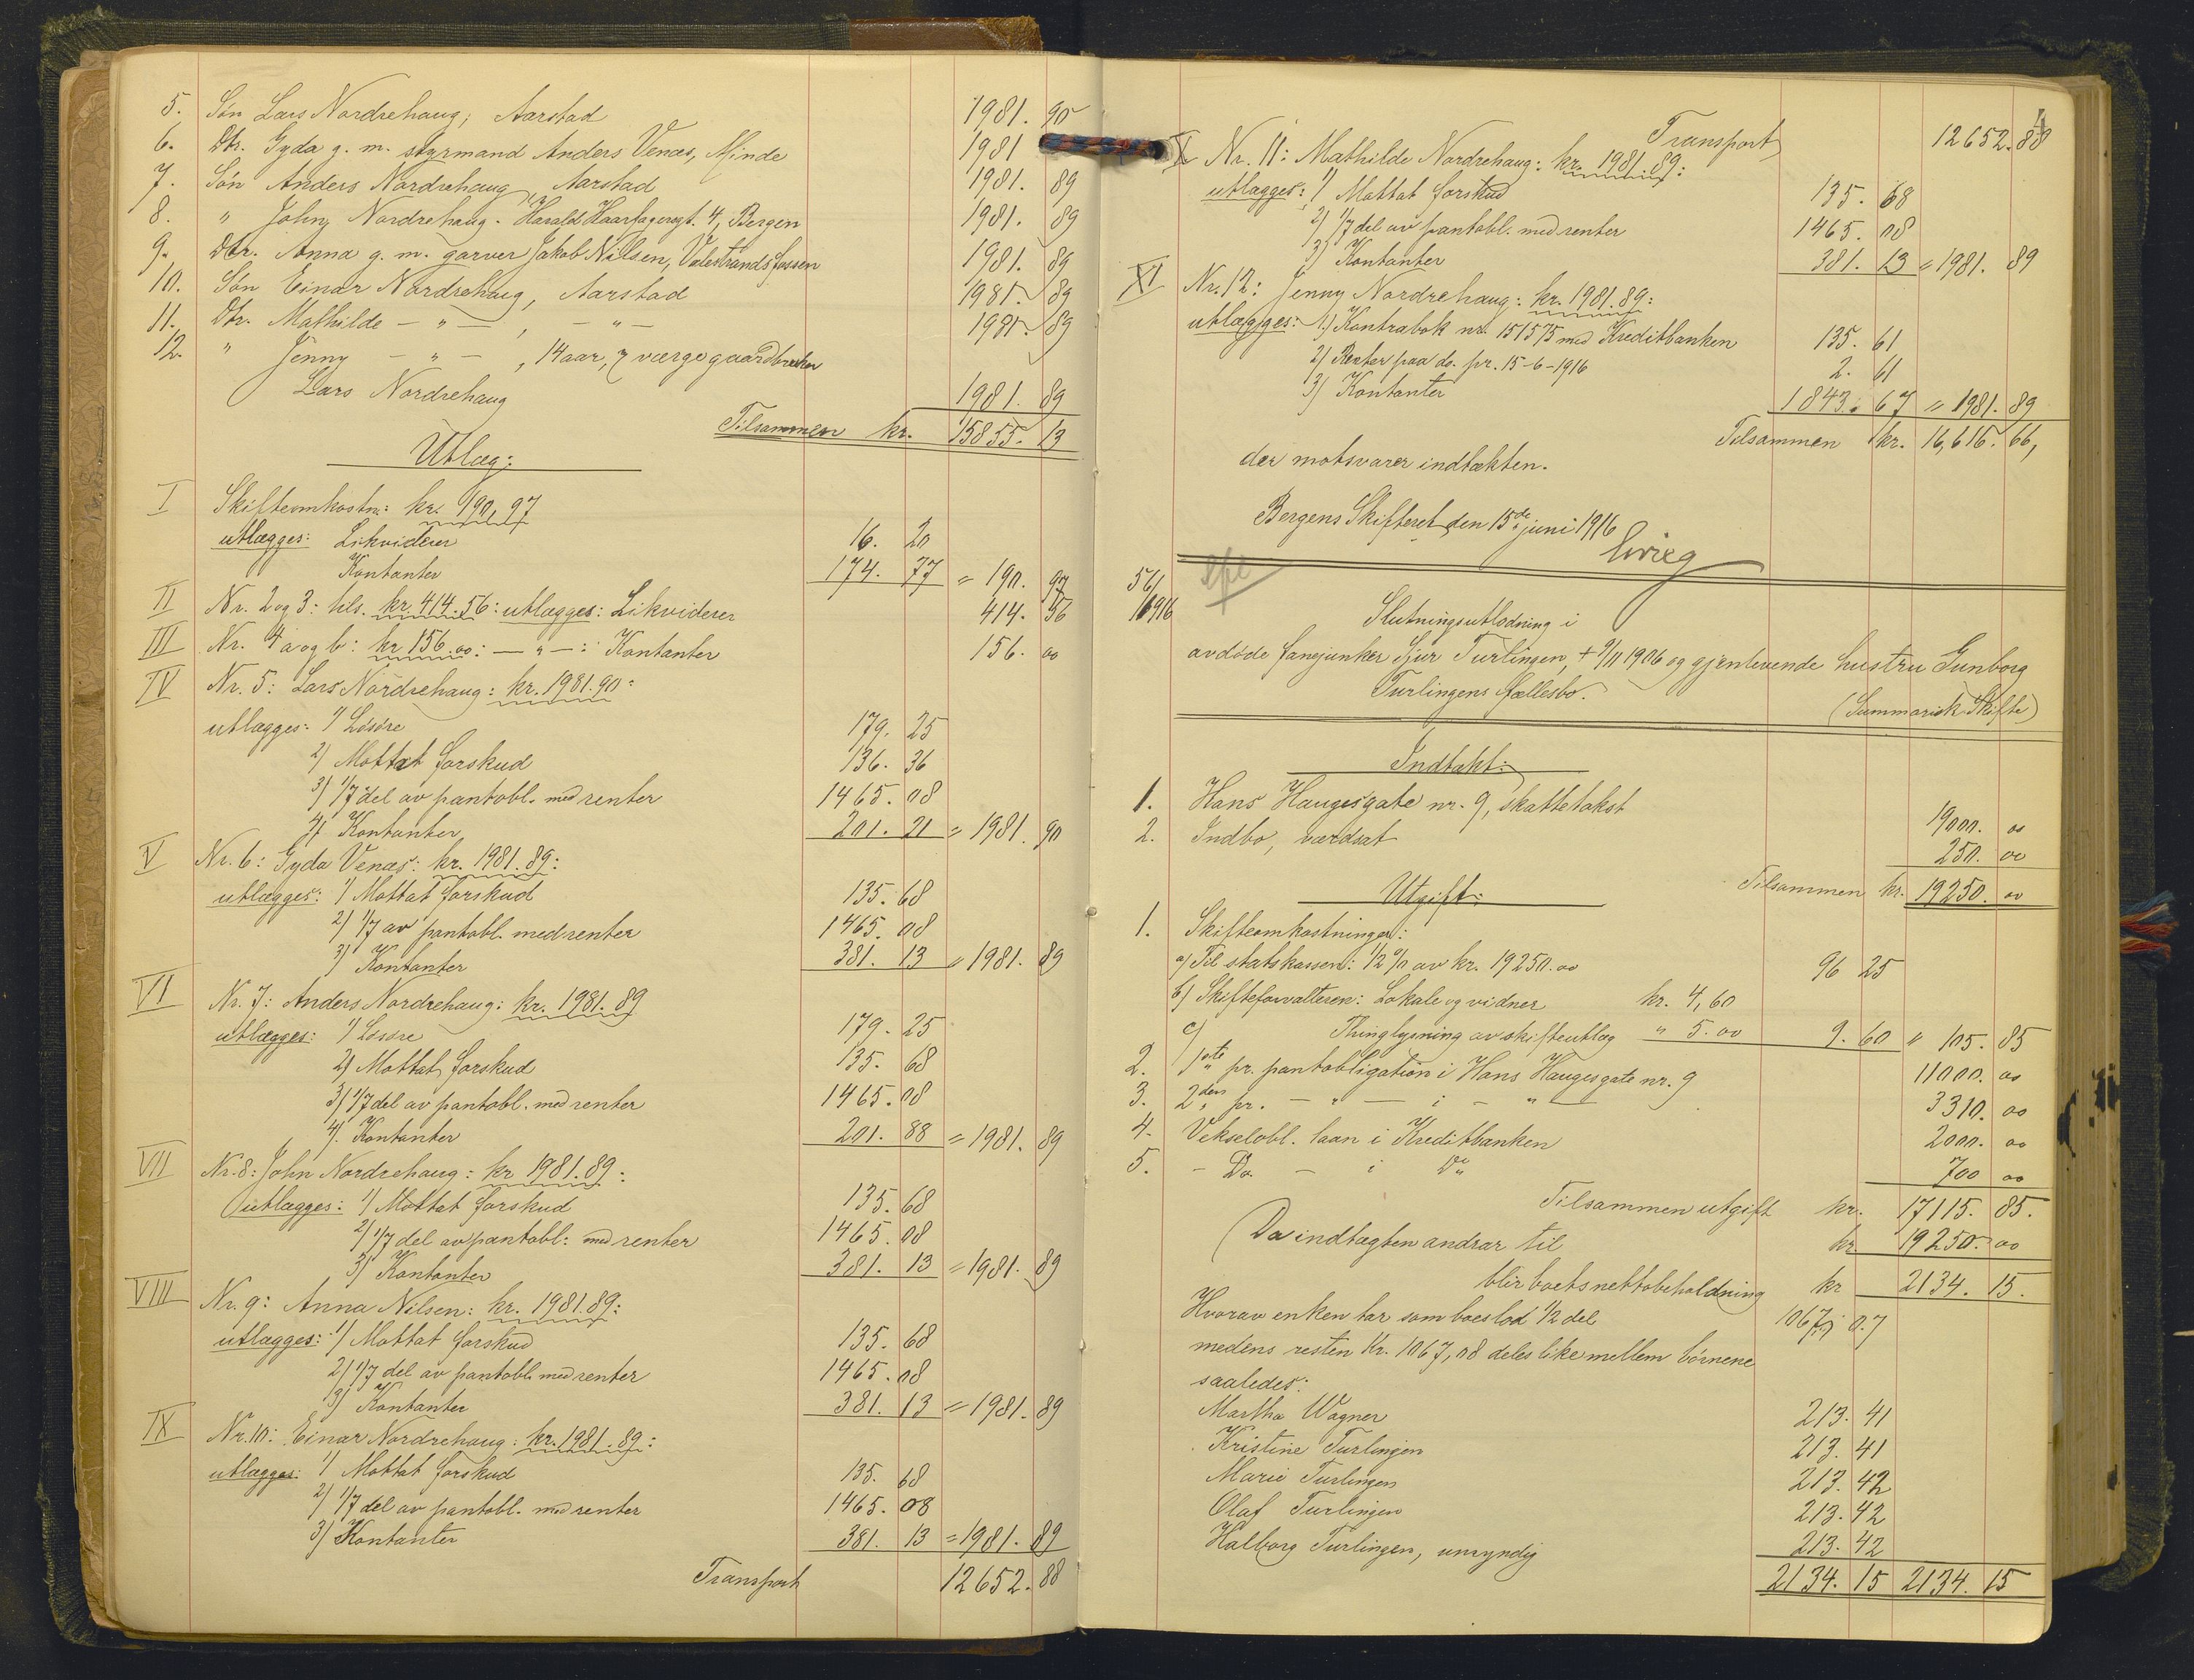 5. Søn Lars Nordrehaug, Aarstad 1981. 90
6. Dtr. Gyda g. m. styrmand Anders Venæs, Minde 1981
7. Søn Anders Nordrehaug, Aarstad 1981. 89
8. " John Nordrehaug. Harald Haarfagersgt. 4, Bergen 1981. 89
9. Dtr. Anna g. m. garver Jakob Nilsen, Valestrandsfossen 1981. 89
10. Søn Einar Nordrehaug, Aarstad 1981. 89
11. Dtr. Mathilde - " - , - " - 1981. 89
12. " Jenny - " - , 14 aar, værge gaardbruker
Lars Nordrehaug 1981. 89
Tilsammen kr. 15855. 13
Utlæg:
I Skifteomkostn: kr. 190,97
utlægges: Likviderer 16. 20
Kontanter 174. 77 = 190. 97
II Nr. 2 og 3: tils. kr. 414.56: utlægges: Likviderer 414. 56
III Nr. 4 a og b: kr 156.00: - " - : Kontanter 156. 00
IV Nr. 5: Lars Nordrehaug: kr. 1981.90:
utlægges: 1) Løsøre 179. 25
2) Mottat forskud 136. 36
3) 1/7 del av pantobl. med renter 1465. 08
4) Kontanter 201. 21 = 1981. 90
V Nr. 6: Gyda Venæs: kr. 1981.89:
utlægges: 1) Mottat forskud 135. 68
2) 1/7 av pantobl. med renter 1465. 08
3) Kontanter 381. 13 = 1981. 89
VI Nr. 7: Anders Nordrehaug: kr. 1981.89
utlægges: 1) Løsøre 179. 25
2) Mottat forskud 135. 68
3) 1/7 del av pantobl. med renter 1465. 08
4) Kontanter 201. 88 = 1981. 89
VII Nr. 8: John Nordrehaug: kr 1981.89:
utlægges: 1) Mottat forskud 135. 68
2) 1/7 del av pantobl: med renter 1465. 08
3) Kontanter 381. 13 = 1981. 89
VIII Nr. 9: Anna Nilsen: kr. 1981.89:
utlægges: 1) Mottat forskud 135. 68
2) 1/7 del av pantobl. med renter 1465. 08
3) Kontanter 381. 13 = 1981. 89
IX Nr. 10: Einar Nordrehaug: kr. 1981.89:
utlægges: 1) Mottat forskud 135. 68
2) 1/7 del av pantobl. med renter 1465. 08
3) Kontanter 381. 13 = 1981. 89
Transport 12652. 88
4
Transport 12652. 88
X Nr. 11: Mathilde Nordrehaug: kr. 1981.89:
utlægges: 1) Mottat forskud 135. 68
2) 1/7 del av pantobl. med renter 1465. 08
3) Kontanter 381. 13 = 1981. 89
XI Nr. 12: Jenny Nordrehaug: kr. 1981.89:
utlægges: 1.) Kontrabok nr. 151575 med Kreditbanken 135. 61
2) Renter paa do. pr. 15-6-1916 2. 61
3) Kontanter 1843. 67 = 1981. 89
Tilsammen kr. 16,616. 66,
der motsvarer indtækten.
Bergens Skifteret den 15de juni 1916
Grieg
56/1916
Slutningsutlodning i
avdøde fanejunker Sjur Turlingen, + 9/11 1906 og gjenlevende hustru Gunborg
Turlingens fællesbo.
(Summarisk Skifte)
Indtækt:
1. Hans Haugesgate nr. 9, skattetakst 19000. 00
2. Indbo, værdsat 250. 00
Tilsammen kr. 19250. 00
Utgift:
1. Skifteomkostninger:
a) Til statskassen: 1/2 % av kr. 19250.00 96 25
b) Skifteforvalteren: Lokale og vidner kr. 4,60
c) Thinglysning av skifteutlæg " 5.00 9. 60 " 105. 85
2. 1ste pr. pantobligation i Hans Haugesgate nr. 9 11000. 00
3. 2den pr. - " - i - " - 3310. 00
4. Vekselobl. laan i Kreditbanken 2000. 00
5. - Do - i Do 700 00
Tilsammen utgift kr. 17115. 85.
Da indtægten andrar til kr 19250. 00
blir boets nettobeholdning kr 2134. 15.
Hvorav enken tar som boeslod 1/2 del 1067, 07
medens resten kr. 1067,08 deles like mellem børnene
saaledes:
Martha Wagner 213. 41
Kristine Turlingen 213. 41
Marie Turlingen 213. 42
Olaf Turlingen 213. 42
Halborg Turlingen, umyndig 213. 42
2134. 15 2134. 15